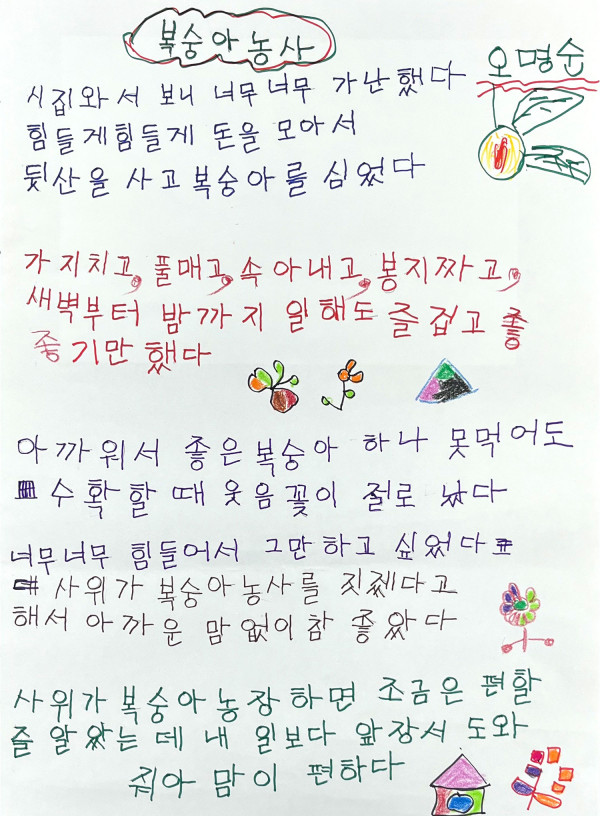 복숭아농사
오명순
시집와서 보니 너무너무 가난했다
힘들게힘들게 돈을 모아서
뒷산을 사고 복숭아를 심었다
가지치고, 풀매고, 속아내고, 봉지짜고,
새벽부터 밤까지 일해도 즐겁고 좋
좋기만 했다
아까워서 좋은복숭아 하나 못먹어도
수확할때 웃음꽃이 절로 났다
너무너무 힘들어서 그만하고 싶었다
사위가 복숭아농사를 짓겠다고
해서 아까운 맘없이참 좋았다
사위가 복숭아농장하면 조금은 편할
줄 알았는데 내 일보다 앞장서 도와
줘아 맘이 편하다